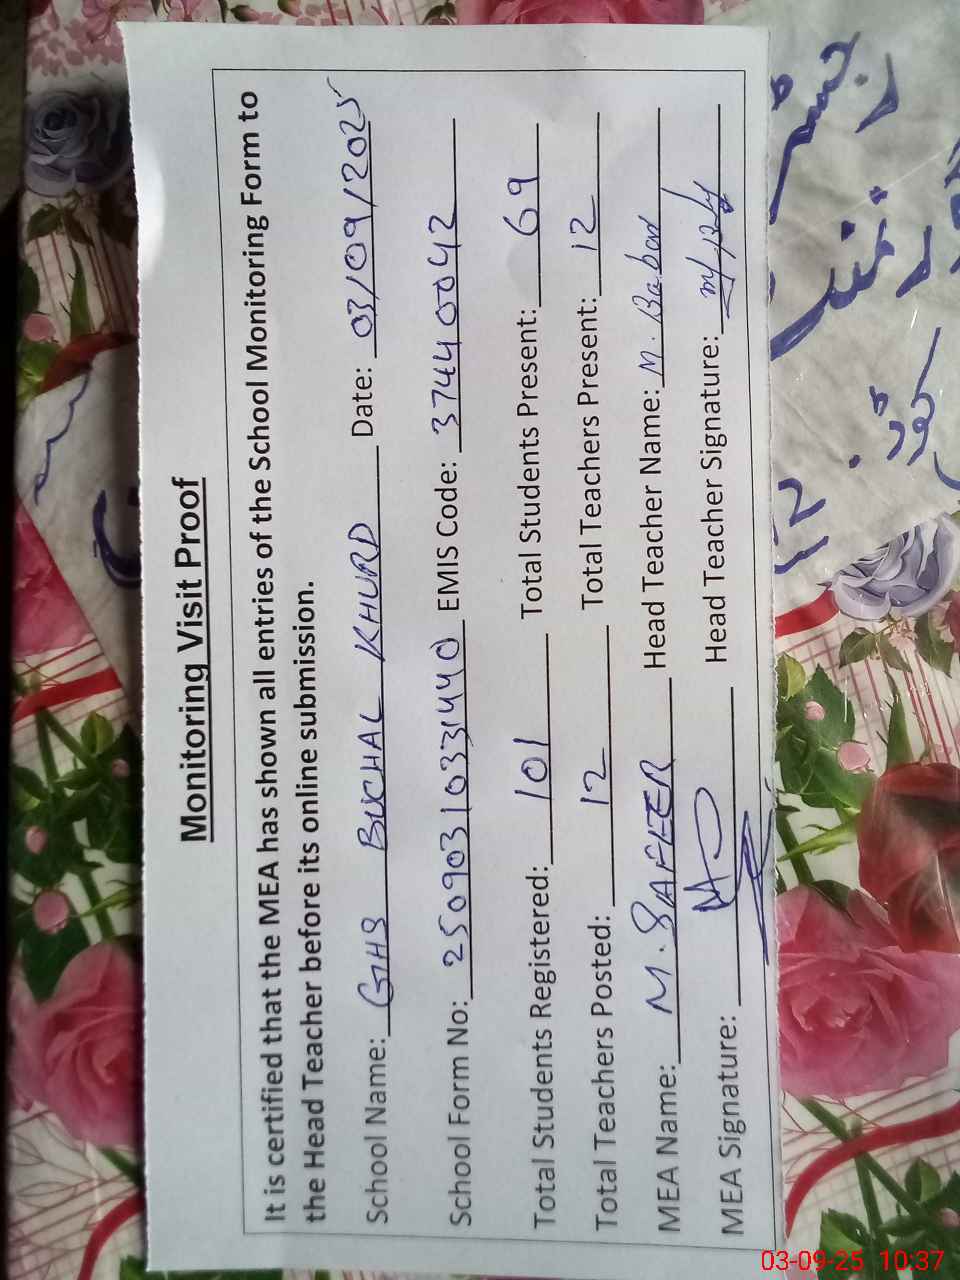 Monitoring Visit Proof
It is certified that the MEA has shown all entries of the School Monitoring Form to
the Head Teacher before its online submission.
School Name: GHS BUCHAL KHURD Date: 03/09/2025
School Form No: 25090310331440 EMIS Code: 37440042
Total Students Registered: 101 Total Students Present: 69
Total Teachers Posted: 12 Total Teachers Present: 12
MEA Name: M. SAFEER Head Teacher Name: M. Baban
MEA Signature: Head Teacher Signature:
03-09-25 10:37